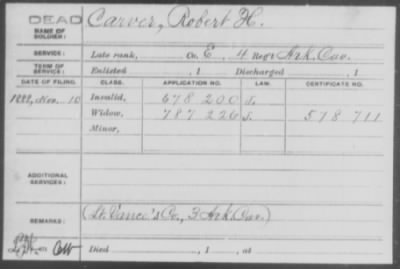 DEAD
NAME OF SOLDIER: Carver, Robert H.
SERVICE: Late rank, Co. E, 4 Reg't Ark. Cav.
TERM OF SERVICE: Enlisted , 1 Discharged , 1
DATE OF FILING. CLASS. APPLICATION NO. LAW. CERTIFICATE NO.
1888, Nov. 10 Invalid, 678 200
Widow, 787 226 578 711
Minor,
ADDITIONAL SERVICES:
REMARKS: (Lt. Vance's Co., 3 Ark. Cav.)
Died , 1 , at